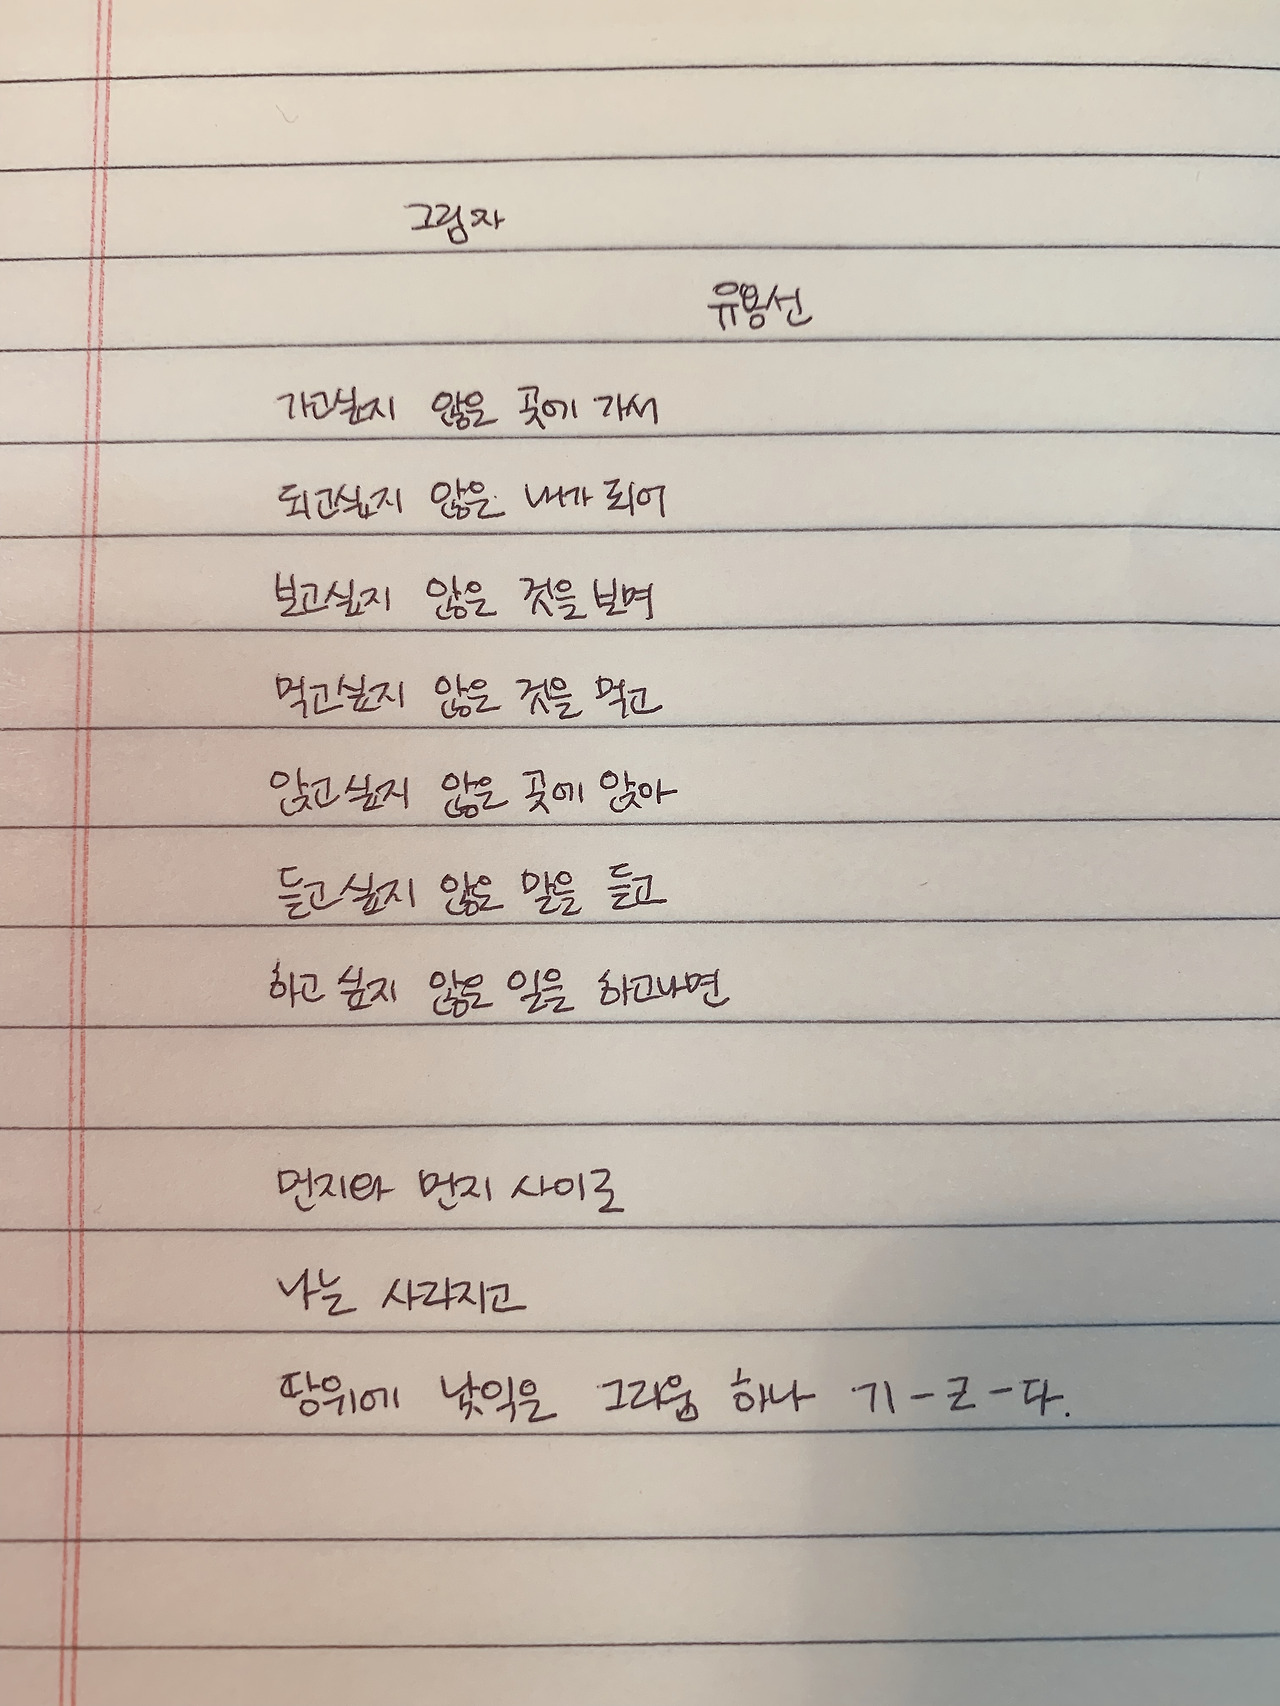 그림자
유용선
가고싶지 않은 곳에 가서
되고싶지 않은 내가 되어
보고싶지 않은 것을 보며
먹고싶지 않은 것을 먹고
앉고싶지 않은 곳에 앉아
듣고싶지 않은 말을 듣고
하고 싶지 않은 일을 하고나면
먼지와 먼지 사이로
나는 사라지고
땅위에 낯익은 그리움 하나 기-ㄹ-다.